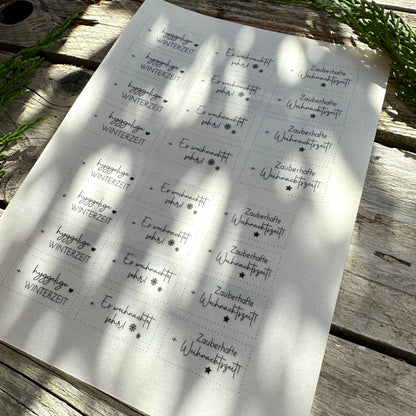 hyggelige
WINTERZEIT
Er weihnachtet
sehr!
Zauberhafte
Weihnachtszeit!
hyggelige
WINTERZEIT
Er weihnachtet
sehr!
Zauberhafte
Weihnachtszeit!
hyggelige
WINTERZEIT
Er weihnachtet
sehr!
Zauberhafte
Weihnachtszeit!
hyggelige
WINTERZEIT
Er weihnachtet
sehr!
Zauberhafte
Weihnachtszeit!
hyggelige
WINTERZEIT
Er weihnachtet
sehr!
Zauberhafte
Weihnachtszeit!
hyggelige
WINTERZEIT
Er weihnachtet
sehr!
Zauberhafte
Weihnachtszeit!
hyggelige
WINTERZEIT
Er weihnachtet
sehr!
Zauberhafte
Weihnachtszeit!
hyggelige
WINTERZEIT
Er weihnachtet
sehr!
Zauberhafte
Weihnachtszeit!